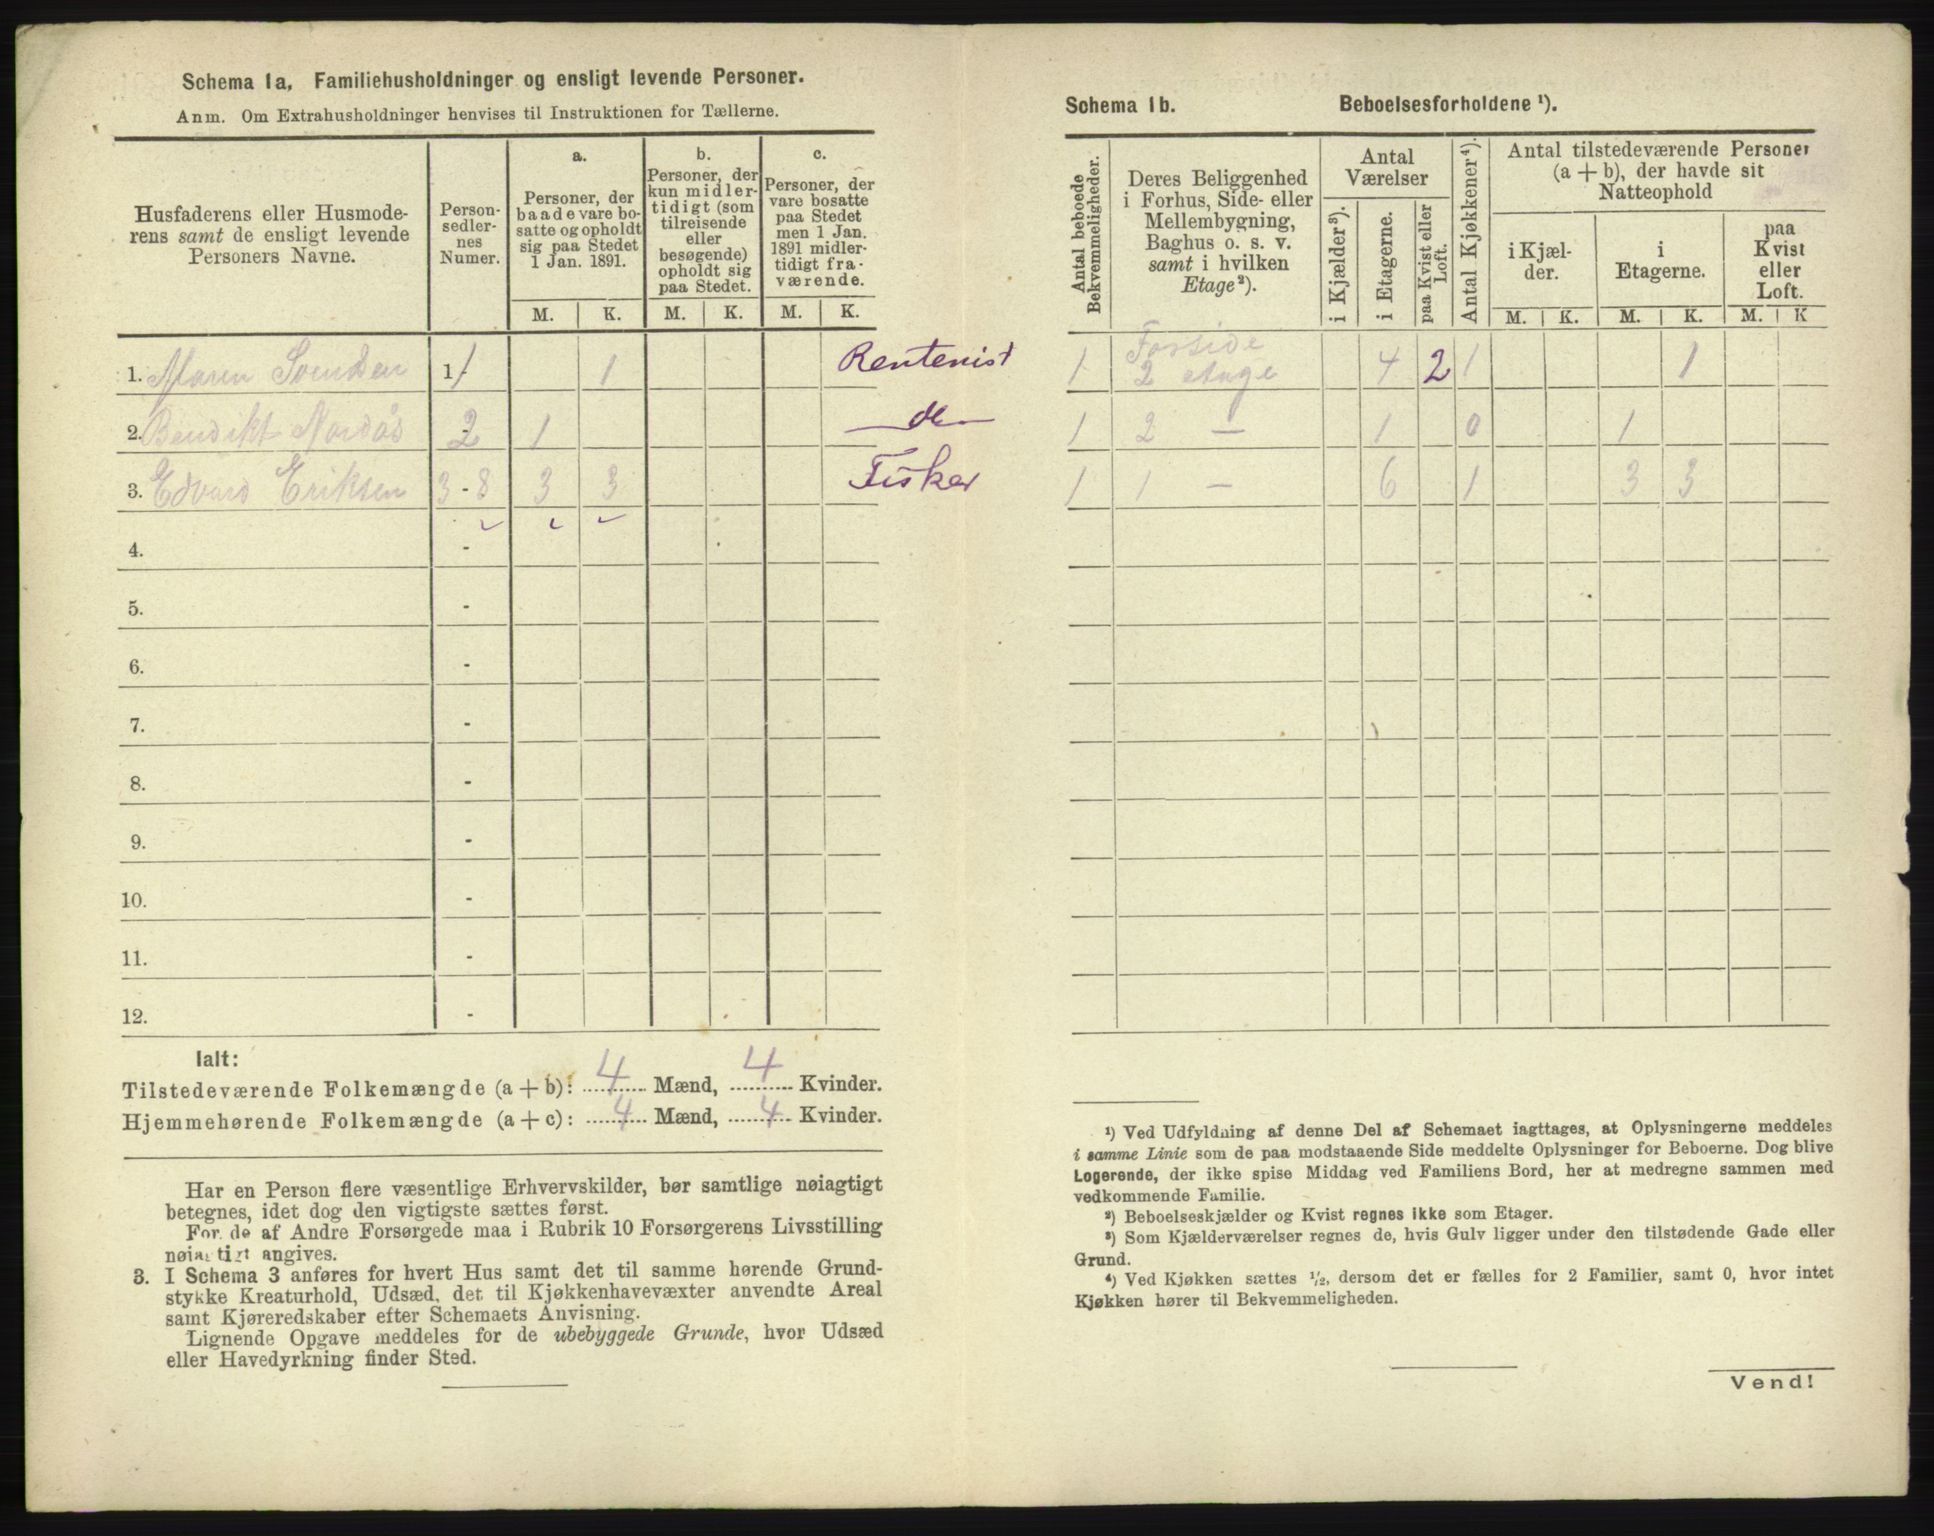 Schema 1a, Familiehusholdninger og ensligt levende Personer.
Anm. Om Extrahusholdninger henvises til Instruktionen for Tællerne.
Husfaderens eller Husmoderens samt de ensligt levende Personers Navne.
Person-sedler-nes Numer.
a.
Personer, der baade vare bosatte og opholdt sig paa Stedet 1 Jan. 1891.
b.
Personer, der kun midlertidigt (som tilreisende eller besøgende) opholdt sig paa Stedet.
c.
Personer, der vare bosatte paa Stedet men 1 Jan. 1891 midlertidigt fraværende.
M. K. M. K. M. K.
1. Maren Svendsen 1 1 Rentenist
2. Bendikt Nordås 2 1 do
3. Edvard Eriksen 3 - 8 3 3 Fisker
4. -
5. -
6. -
7. -
8. -
9. -
10. -
11. -
12. -
Ialt:
Tilstedeværende Folkemængde (a + b): 4 Mænd, 4 Kvinder.
Hjemmehørende Folkemængde (a + c): 4 Mænd, 4 Kvinder.
Har en Person flere væsentlige Erhvervskilder, bør samtlige nøiagtigt
betegnes, idet dog den vigtigste sættes først.
For de af Andre Forsørgede maa i Rubrik 10 Forsørgerens Livsstilling
nøiagtigt angives.
3. I Schema 3 anføres for hvert Hus samt det til samme hørende Grund-
stykke Kreaturhold, Udsæd, det til Kjøkkenhavevæxter anvendte Areal
samt Kjøreredskaber efter Schemaets Anvisning.
Lignende Opgave meddeles for de ubebyggede Grunde, hvor Udsæd
eller Havedyrkning finder Sted.
Schema 1b. Beboelsesforholdene ¹).
Antal beboede Bekvemmeligheder.
Deres Beliggenhed i Forhus, Side- eller Mellembygning, Baghus o. s. v. samt i hvilken Etage ²).
Antal Værelser
i Kjælder ³).
i Etagerne.
paa Kvist eller Loft.
Antal Kjøkkener ⁴).
Antal tilstedeværende Personer (a + b), der havde sit Natteophold
i Kjælder.
i Etagerne.
paa Kvist eller Loft.
M. K. M. K. M. K
1 Forside 2 etage 4 2 1 1
1 2 — 1 0 1
1 1 — 6 1 3 3
¹) Ved Udfyldning af denne Del af Schemaet iagttages, at Oplysningerne meddeles
i samme Linie som de paa modstaaende Side meddelte Oplysninger for Beboerne. Dog blive
Logerende, der ikke spise Middag ved Familiens Bord, her at medregne sammen med
vedkommende Familie.
²) Beboelseskjælder og Kvist regnes ikke som Etager.
³) Som Kjælderværelser regnes de, hvis Gulv ligger under den tilstødende Gade eller
Grund.
⁴) Ved Kjøkken sættes ½, dersom det er fælles for 2 Familier, samt 0, hvor intet
Kjøkken hører til Bekvemmeligheden.
Vend!